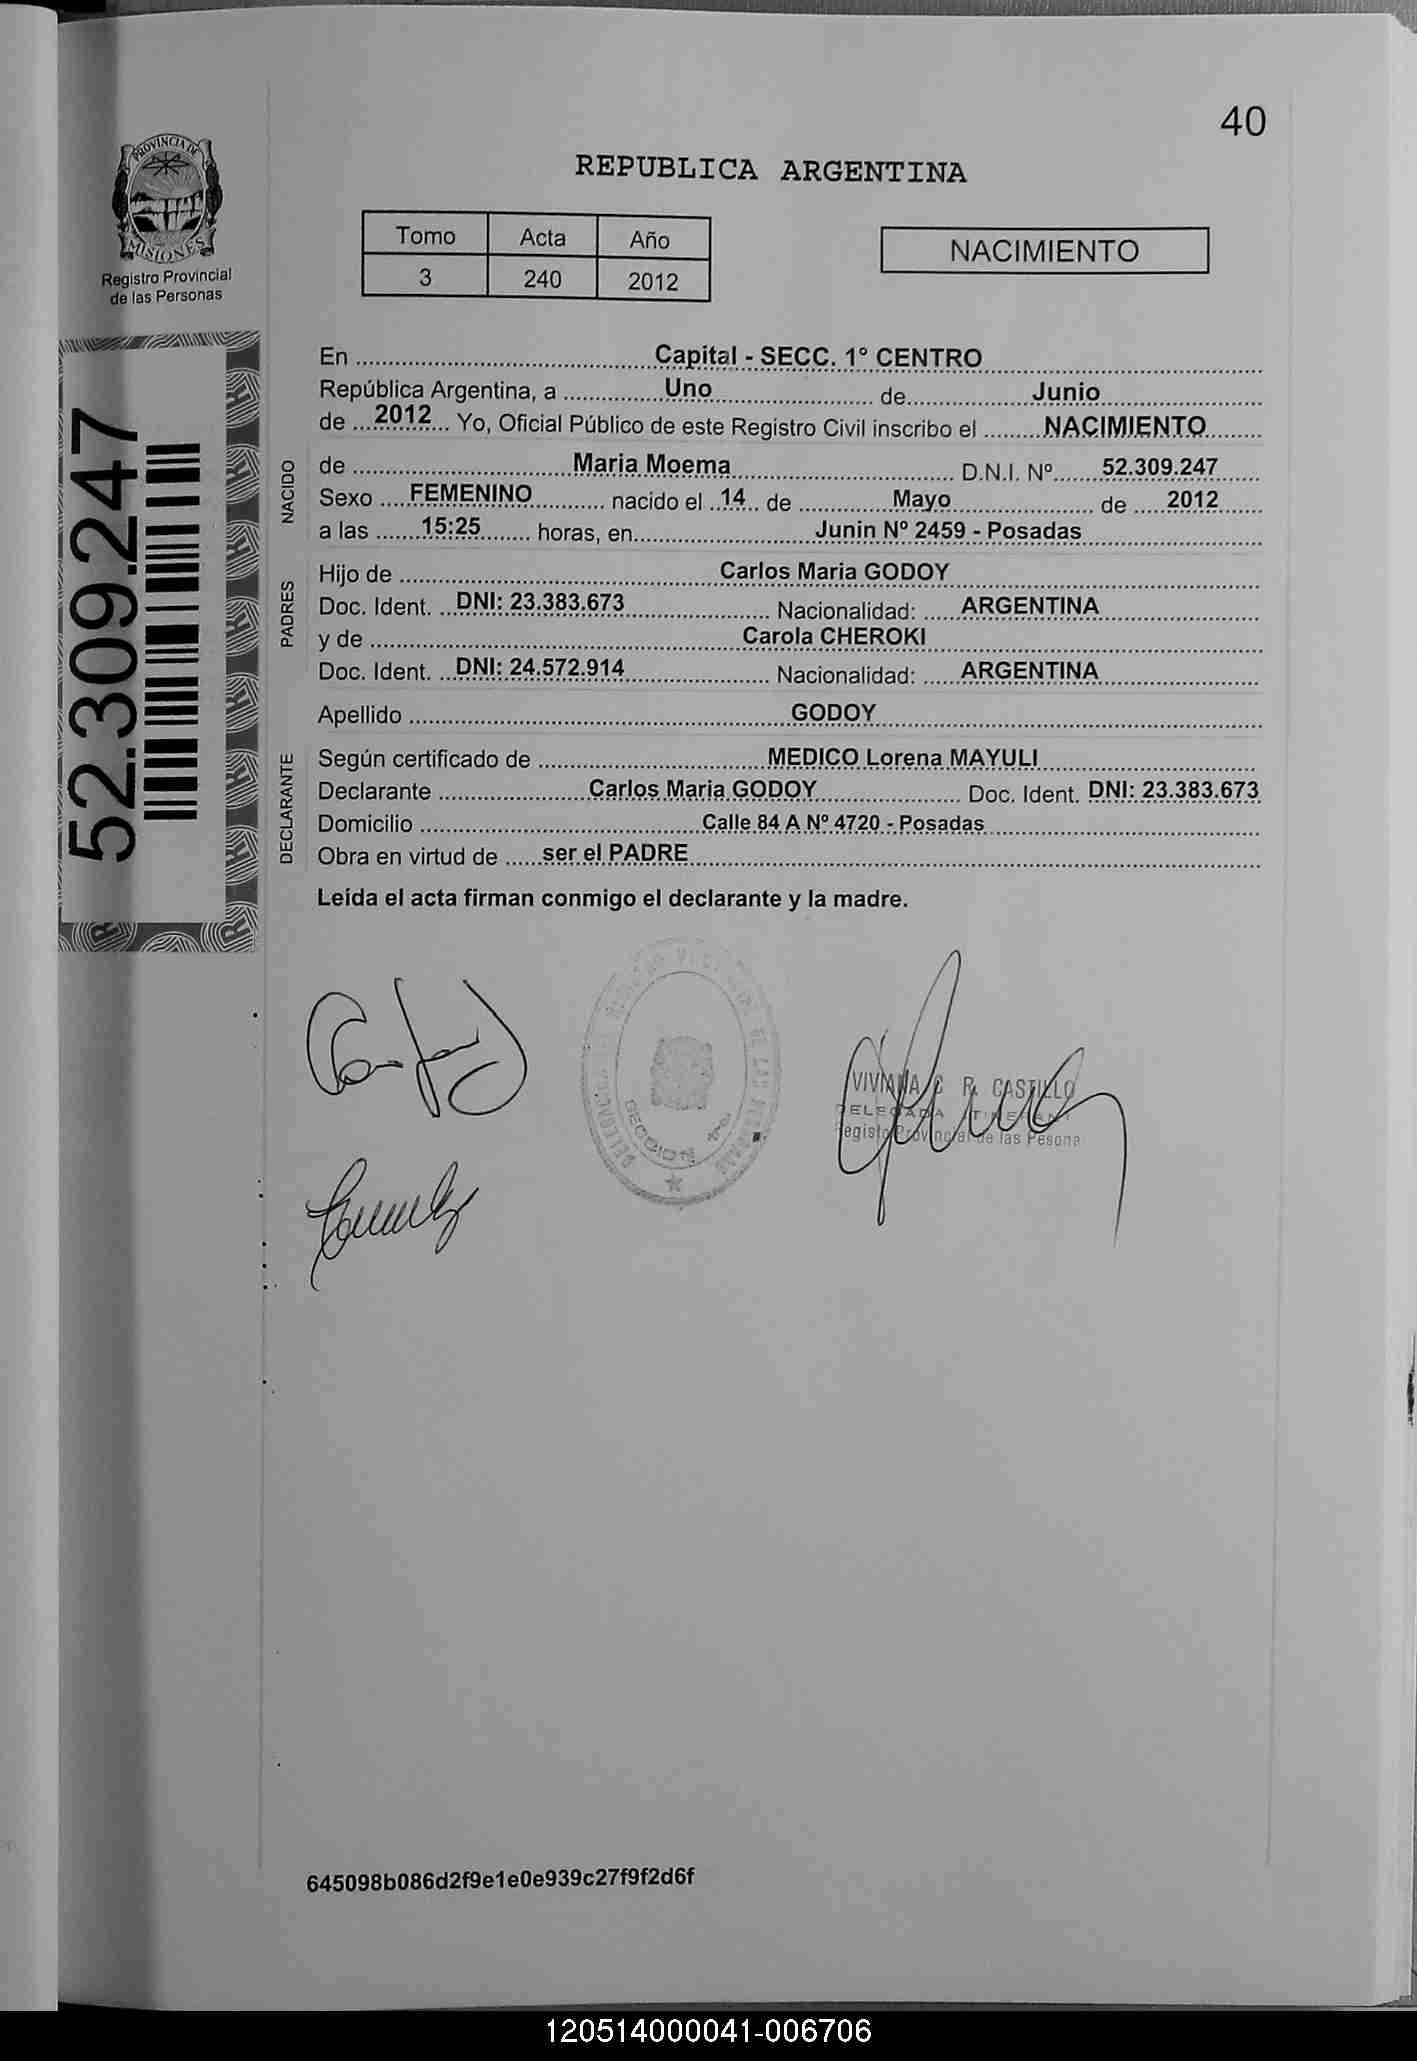 40
PROVINCIA DE
MISIONES
Registro Provincial
de las Personas
REPUBLICA ARGENTINA
Tomo Acta Año
3 240 2012
NACIMIENTO
52.309.247
En Capital - SECC. 1° CENTRO
República Argentina, a Uno de Junio
de 2012 Yo, Oficial Público de este Registro Civil inscribo el NACIMIENTO
NACIDO
de Maria Moema D.N.I. Nº 52.309.247
Sexo FEMENINO nacido el 14 de Mayo de 2012
a las 15:25 horas, en Junin Nº 2459 - Posadas
PADRES
Hijo de Carlos Maria GODOY
Doc. Ident. DNI: 23.383.673 Nacionalidad: ARGENTINA
y de Carola CHEROKI
Doc. Ident. DNI: 24.572.914 Nacionalidad: ARGENTINA
Apellido GODOY
DECLARANTE
Según certificado de MEDICO Lorena MAYULI
Declarante Carlos Maria GODOY Doc. Ident. DNI: 23.383.673
Domicilio Calle 84 A Nº 4720 - Posadas
Obra en virtud de ser el PADRE
Leída el acta firman conmigo el declarante y la madre.
SECCION
VIVIANA C R. CASTILLO
DELEGADA ITINERANT
Registo Provincial de las Pesona
645098b086d2f9e1e0e939c27f9f2d6f
120514000041-006706